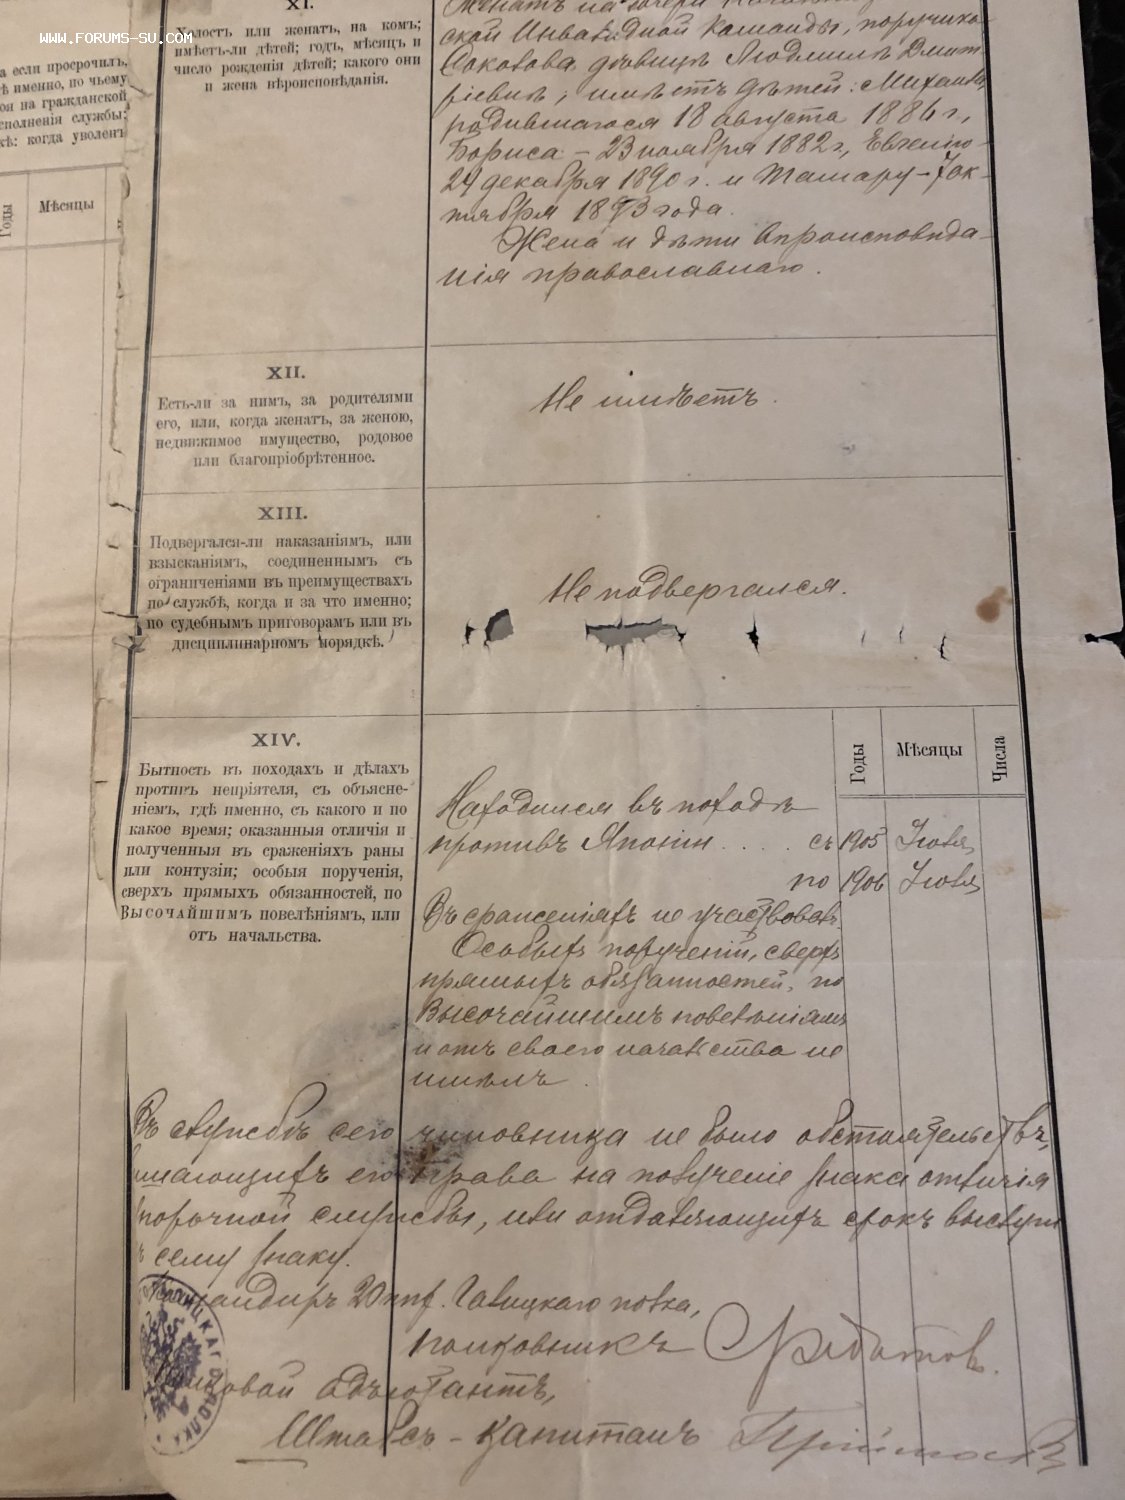 WWW.FORUMS-SU.COM
а если просрочилъ,
ѣ именно, по чьему
на гражданской
сполненія службы;
когда уволенъ
Годы
Мѣсяцы
XI.
Холостъ или женатъ, на комъ;
имѣетъ-ли дѣтей; годъ, мѣсяцъ и
число рожденія дѣтей; какого они
и жена вѣроисповѣданія.
Женатъ на дочери
ской Инвалидной Команды, поручика
Соколова дѣвицѣ Людмилѣ Дмит
ріевнѣ; имѣетъ дѣтей: Михаила,
родившагося 18 августа 1886 г.,
Бориса – 23 ноября 1882 г., Евгенію –
24 декабря 1890 г. и Тамару – 7 ок-
тября 1893 года.
Жена и дѣти вѣроисповѣда-
нія православнаго.
XII.
Есть-ли за нимъ, за родителями
его, или, когда женатъ, за женою,
недвижимое имущество, родовое
или благопріобрѣтенное.
Не имѣетъ.
XIII.
Подвергался-ли наказаніямъ, или
взысканіямъ, соединеннымъ съ
ограниченіями въ преимуществахъ
по службѣ, когда и за что именно;
по судебнымъ приговорамъ или въ
дисциплинарномъ порядкѣ.
Не подвергался.
XIV.
Бытность въ походахъ и дѣлахъ
противъ непріятеля, съ объясне-
ніемъ, гдѣ именно, съ какого и по
какое время; оказанныя отличія и
полученныя въ сраженіяхъ раны
или контузіи; особыя порученія,
сверхъ прямыхъ обязанностей, по
ВЫСОЧАЙШИМЪ повелѣніямъ, или
отъ начальства.
Годы
Мѣсяцы
Числа
Находился въ походѣ
противъ Японіи . . . . съ 1905 Іюля
по 1906 Іюля
Въ сраженіяхъ не участвовалъ.
Особыхъ порученій, сверхъ
прямыхъ обязанностей, по
Высочайшимъ повелѣніямъ
и отъ своего начальства не
имѣлъ.
Въ службѣ сего чиновника не было обстоятельствъ,
лишающихъ его права на полученіе знака отличія
порочной службы, или отдаляющихъ срокъ выслуги
къ сему знаку.
Командиръ 20 пѣх. Галицкаго полка,
полковникъ
Полковой адъютантъ,
Штабсъ-капитанъ
ГАЛИЦКАГО ПОЛКА